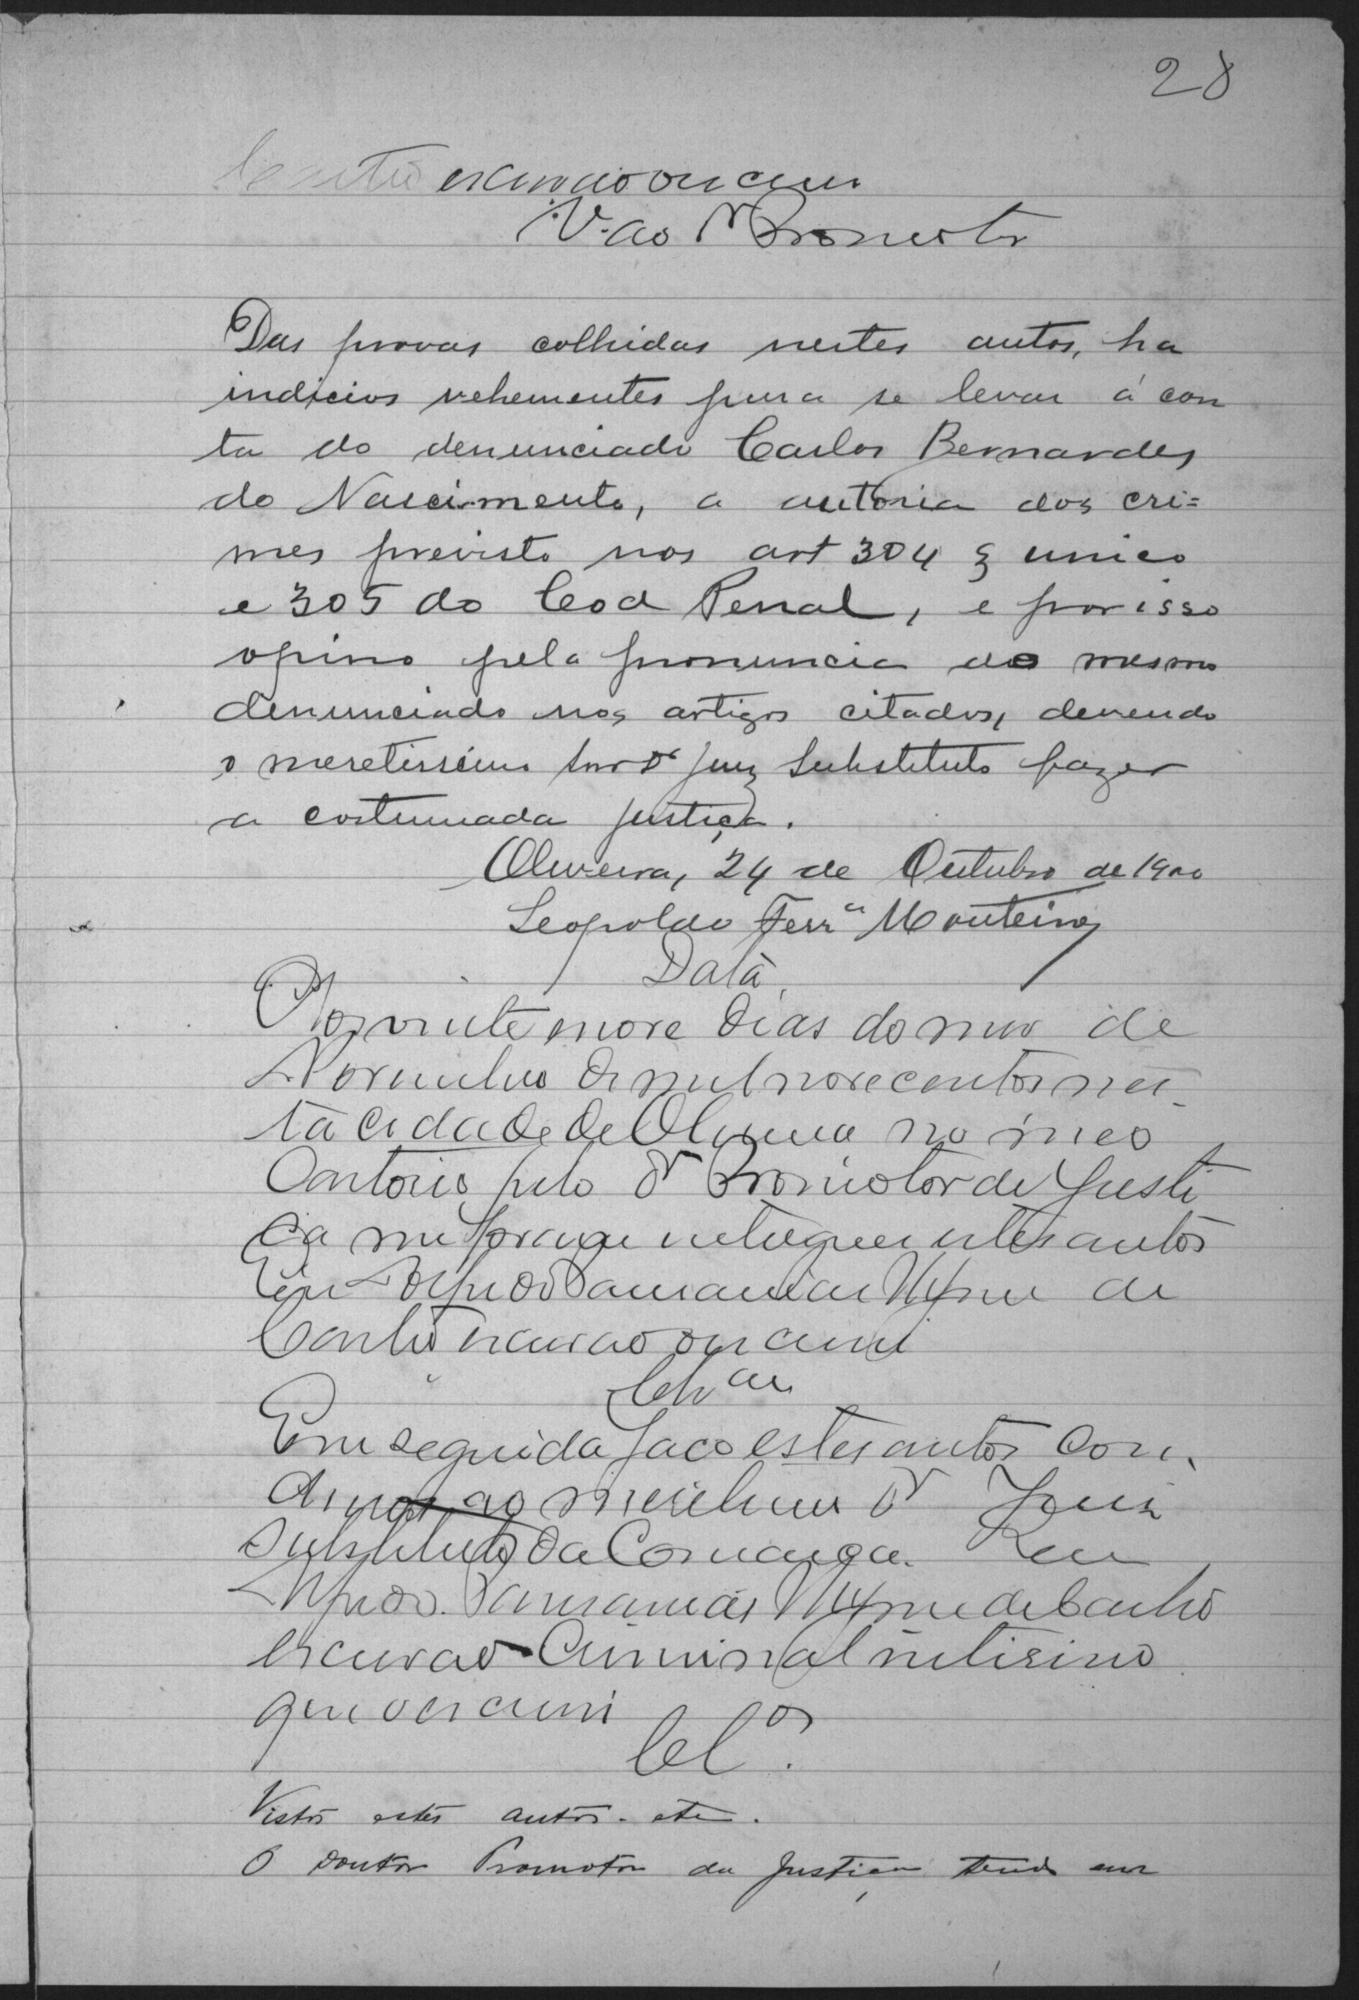 28
Castro escrivão o escrevi
V. ao Dr Promotor
Das provas colhidas nestes autos, ha
indicios vehementes para se levar á con
ta do denunciado Carlos Bernardes
do Nascimento, a autoria dos cri=
mes previsto nos art 304 § unico
e 305 do Cod Penal, e por isso
opino pela pronuncia do mesmo
denunciado nos artigos citados, devendo
o meretissimo snr Dr Juiz Substituto fazer
a costumada justiça.
Oliveira, 24 de Outubro de 1900
Leopoldo Ferra Monteiro
Data
Aos vinte nove dias do mez de
Novembro de mil novecentos nes
ta cidade de Oliveira no meo
Cartorio pelo Dr Promotor de Justi
ça me foram entregues estes autos
Eu Alfredo de Castro escrivão o escrevi
Clsam
Em seguida faço estes autos con
clusos ao meretissimo Dr Juiz
Substituto da Comarca. Eu
Alfredo de Castro
escrivão Criminal interino
que o escrevi
Clos.
Vistos estes autos. etc.
O Doutor Promotor da Justiça tendo em